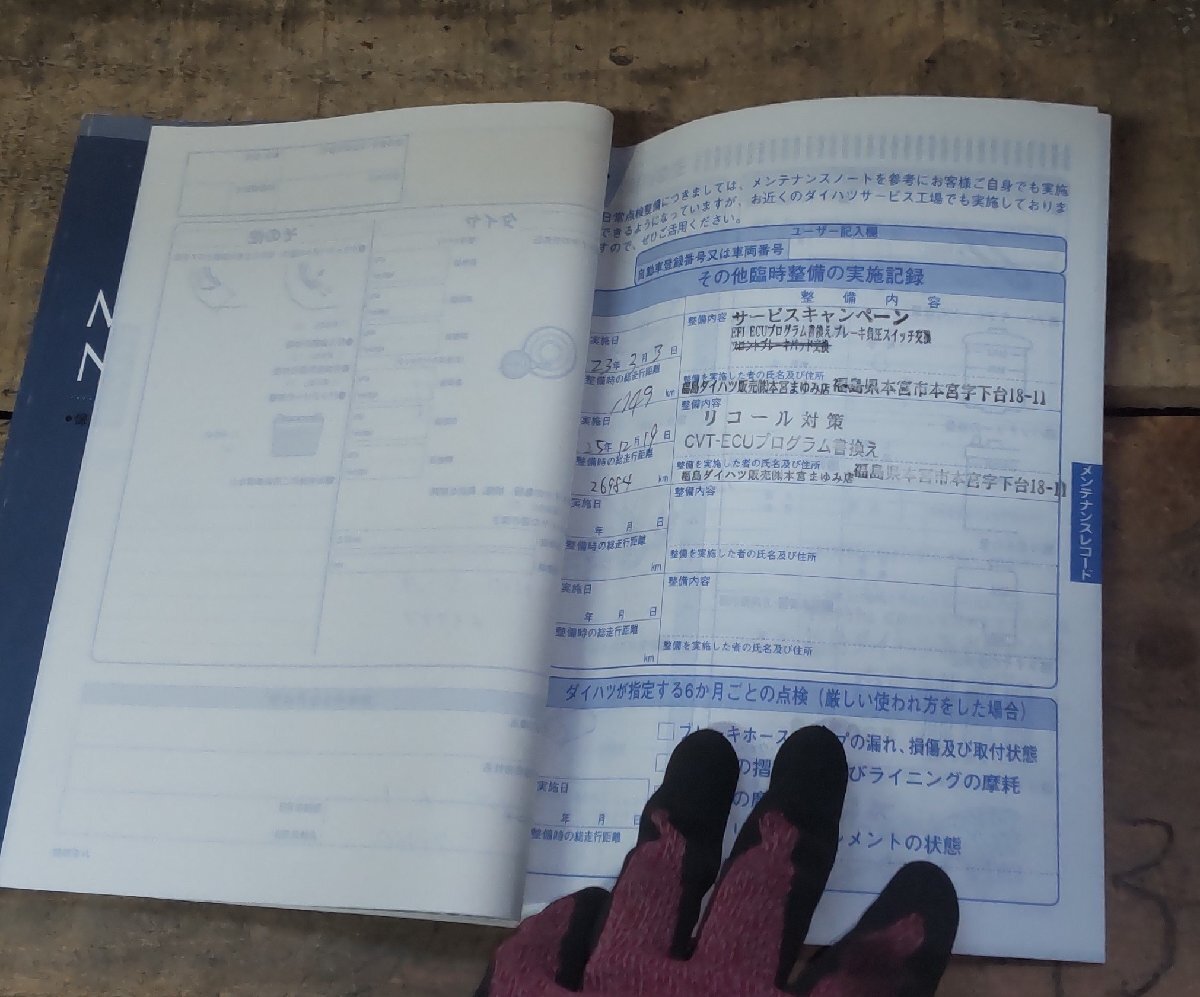 日常点検整備につきましては、メンテナンスノートを参考にお客様ご自身でも実施
できるようになっていますが、お近くのダイハツサービス工場でも実施しておりま
すので、ぜひご活用ください。
ユーザー記入欄
自動車登録番号又は車両番号
その他臨時整備の実施記録
整備内容
実施日
整備内容 サービスキャンペーン
EFI ECUプログラム書換え,ブレーキ負圧スイッチ交換
フロントブレーキパッド交換
23年 2月 3日
整備時の総走行距離
整備を実施した者の氏名及び住所
1749 km
福島ダイハツ販売㈱本宮まゆみ店 福島県本宮市本宮字下台18-11
実施日
整備内容
リコール対策
25年 12月 19日
CVT-ECUプログラム書換え
整備時の総走行距離
整備を実施した者の氏名及び住所
26984 km
福島ダイハツ販売㈱本宮まゆみ店 福島県本宮市本宮字下台18-11
実施日
整備内容
年 月 日
整備時の総走行距離
整備を実施した者の氏名及び住所
km
実施日
整備内容
年 月 日
整備時の総走行距離
整備を実施した者の氏名及び住所
km
メンテナンスレコード
ダイハツが指定する6か月ごとの点検（厳しい使われ方をした場合）
の漏れ、損傷及び取付状態
ライニングの摩耗
実施日
年 月 日
整備時の総走行距離
メントの状態